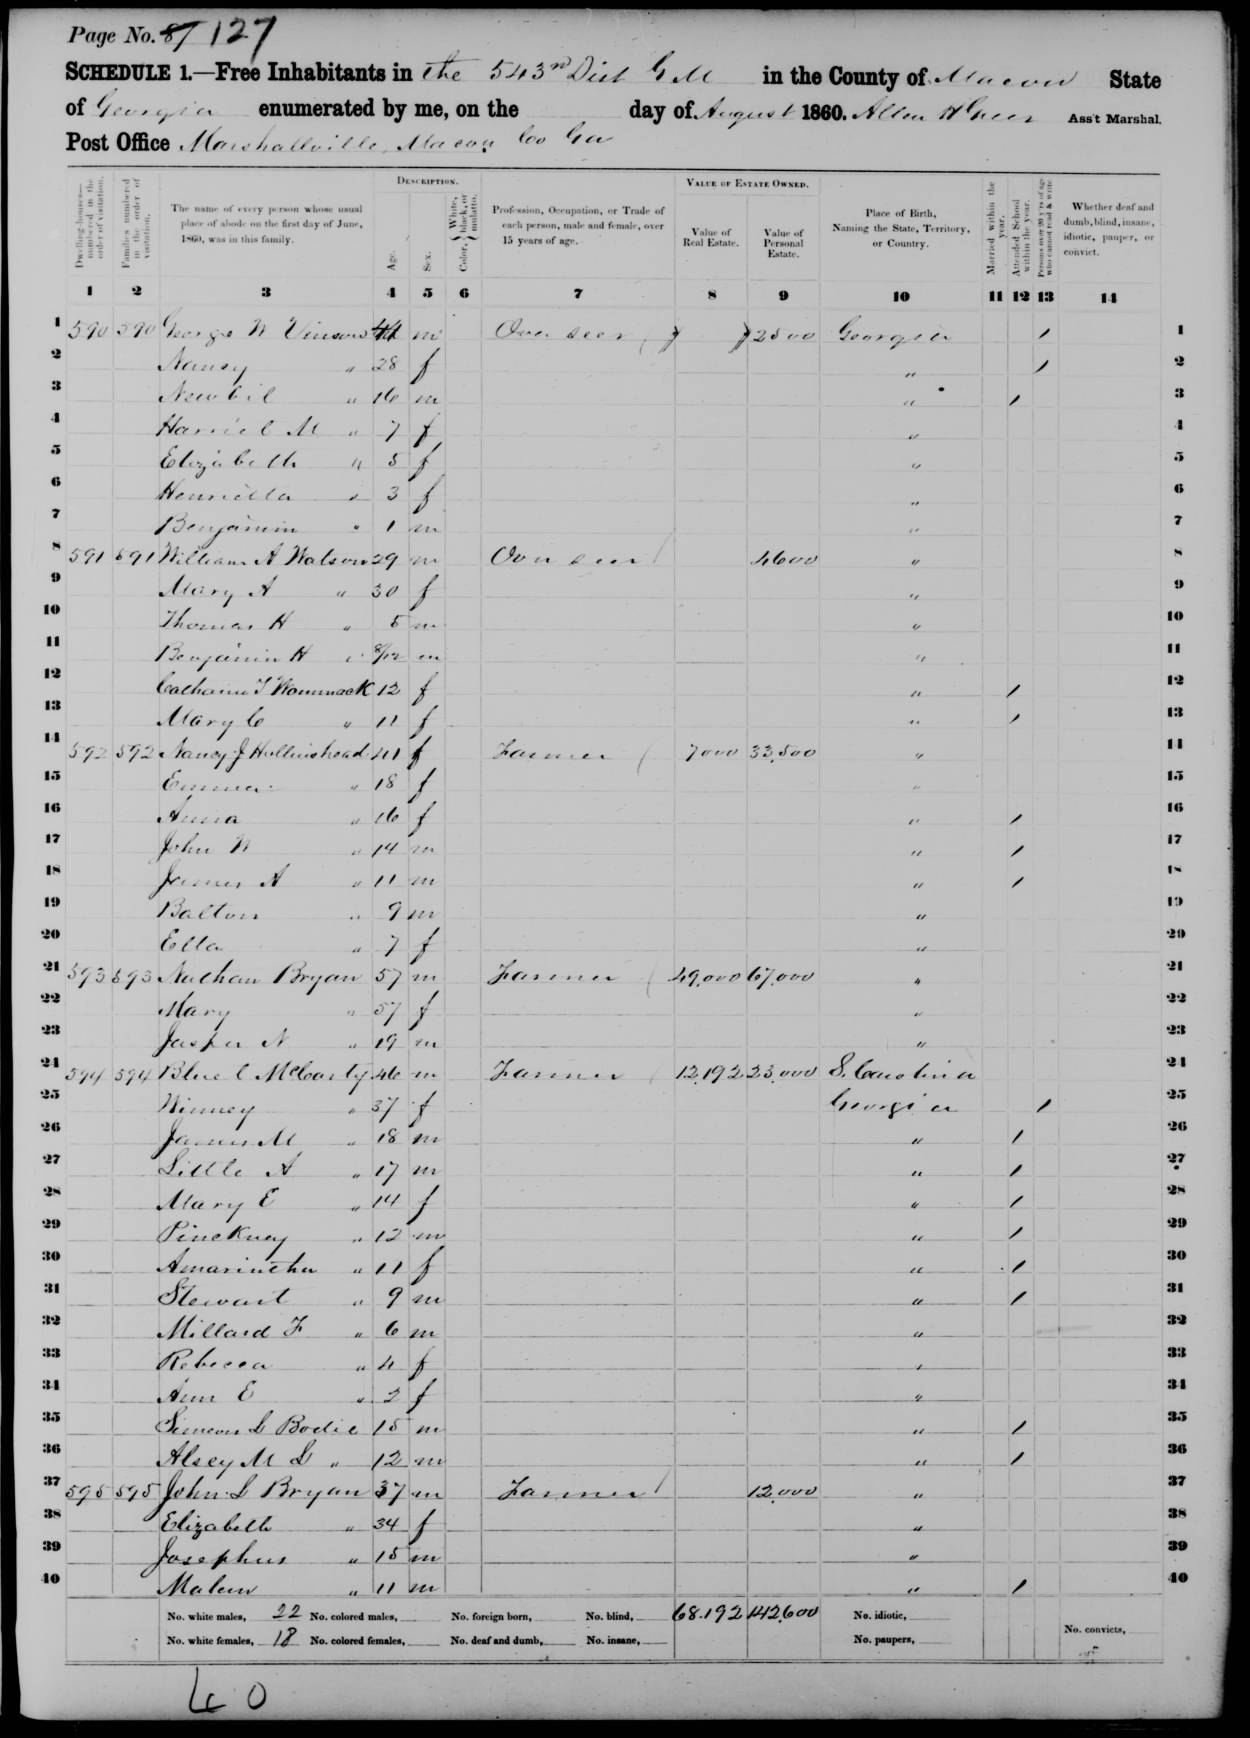 Page No. 87 127
SCHEDULE 1.—Free Inhabitants in the 543rd Dist G M in the County of Macon State
of Georgia enumerated by me, on the day of August 1860. Allen H Greer Ass't Marshal.
Post Office Marshallville, Macon Co Ga
DESCRIPTION. VALUE OF ESTATE OWNED.
Dwelling-houses—numbered in the order of visitation. Families numbered in the order of visitation. The name of every person whose usual place of abode on the first day of June, 1860, was in this family. Age. Sex. Color, White, black, or mulatto. Profession, Occupation, or Trade of each person, male and female, over 15 years of age. Value of Real Estate. Value of Personal Estate. Place of Birth, Naming the State, Territory, or Country. Married within the year. Attended School within the year. Persons over 20 y'rs of age who cannot read & write. Whether deaf and dumb, blind, insane, idiotic, pauper, or convict.
1 2 3 4 5 6 7 8 9 10 11 12 13 14
1 590 590 George W Vinson 44 m Over seer 2500 Georgia / 1
2 Nancy " 28 f " / 2
3 Newbil " 16 m " / 3
4 Harriet M " 7 f " 4
5 Elizabeth " 5 f " 5
6 Henrietta " 3 f " 6
7 Benjamin " 1 m " 7
8 591 591 William A Watson 29 m Over seer 4600 " 8
9 Mary A " 30 f " 9
10 Thomas H " 5 m " 10
11 Benjamin H " 8/12 m " 11
12 Catharine T Wommack 12 f " / 12
13 Mary C " 11 f " / 13
14 592 592 Nancy J Hollinshead 41 f Farmer 7000 33,500 " 14
15 Emma " 18 f " 15
16 Anna " 16 f " / 16
17 John W " 14 m " / 17
18 James A " 11 m " / 18
19 Balton " 9 m " 19
20 Ella " 7 f " 20
21 593 593 Nathan Bryan 57 m Farmer 49,000 67,000 " 21
22 Mary " 57 f " 22
23 Jasper N " 19 m " 23
24 594 594 Bluet McCarty 46 m Farmer 12,192 23,000 S. Carolina 24
25 Winney " 37 f Georgia / 25
26 James M " 18 m " / 26
27 Little A " 17 m " / 27
28 Mary E " 14 f " / 28
29 Pinckney " 12 m " / 29
30 Amarintha " 11 f " / 30
31 Stewart " 9 m " / 31
32 Millard F " 6 m " 32
33 Rebecca " 4 f " 33
34 Ann E " 2 f " 34
35 Simeon L Bodie 15 m " / 35
36 Alsey M L " 12 m " / 36
37 595 595 John L Bryan 37 m Farmer 12,000 " 37
38 Elizabeth " 34 f " 38
39 Josephus " 15 m " 39
40 " 11 m " / 40
No. white males, 22 No. colored males, No. foreign born, No. blind, 68.192 142,600 No. idiotic,
No. white females, 18 No. colored females, No. deaf and dumb, No. insane, No. paupers, No. convicts,
40